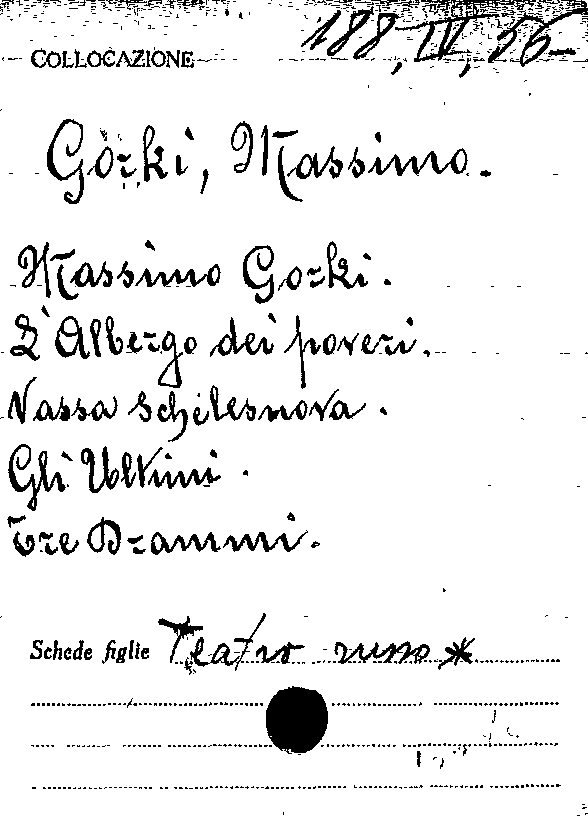 COLLOCAZIONE 188, IV, 56
Gorki, Massimo.
Massimo Gorki.
L'Albergo dei poveri.
Vassa Schelesnova.
Gli Ultimi.
Tre Drammi.
Schede figlie Teatro russo *